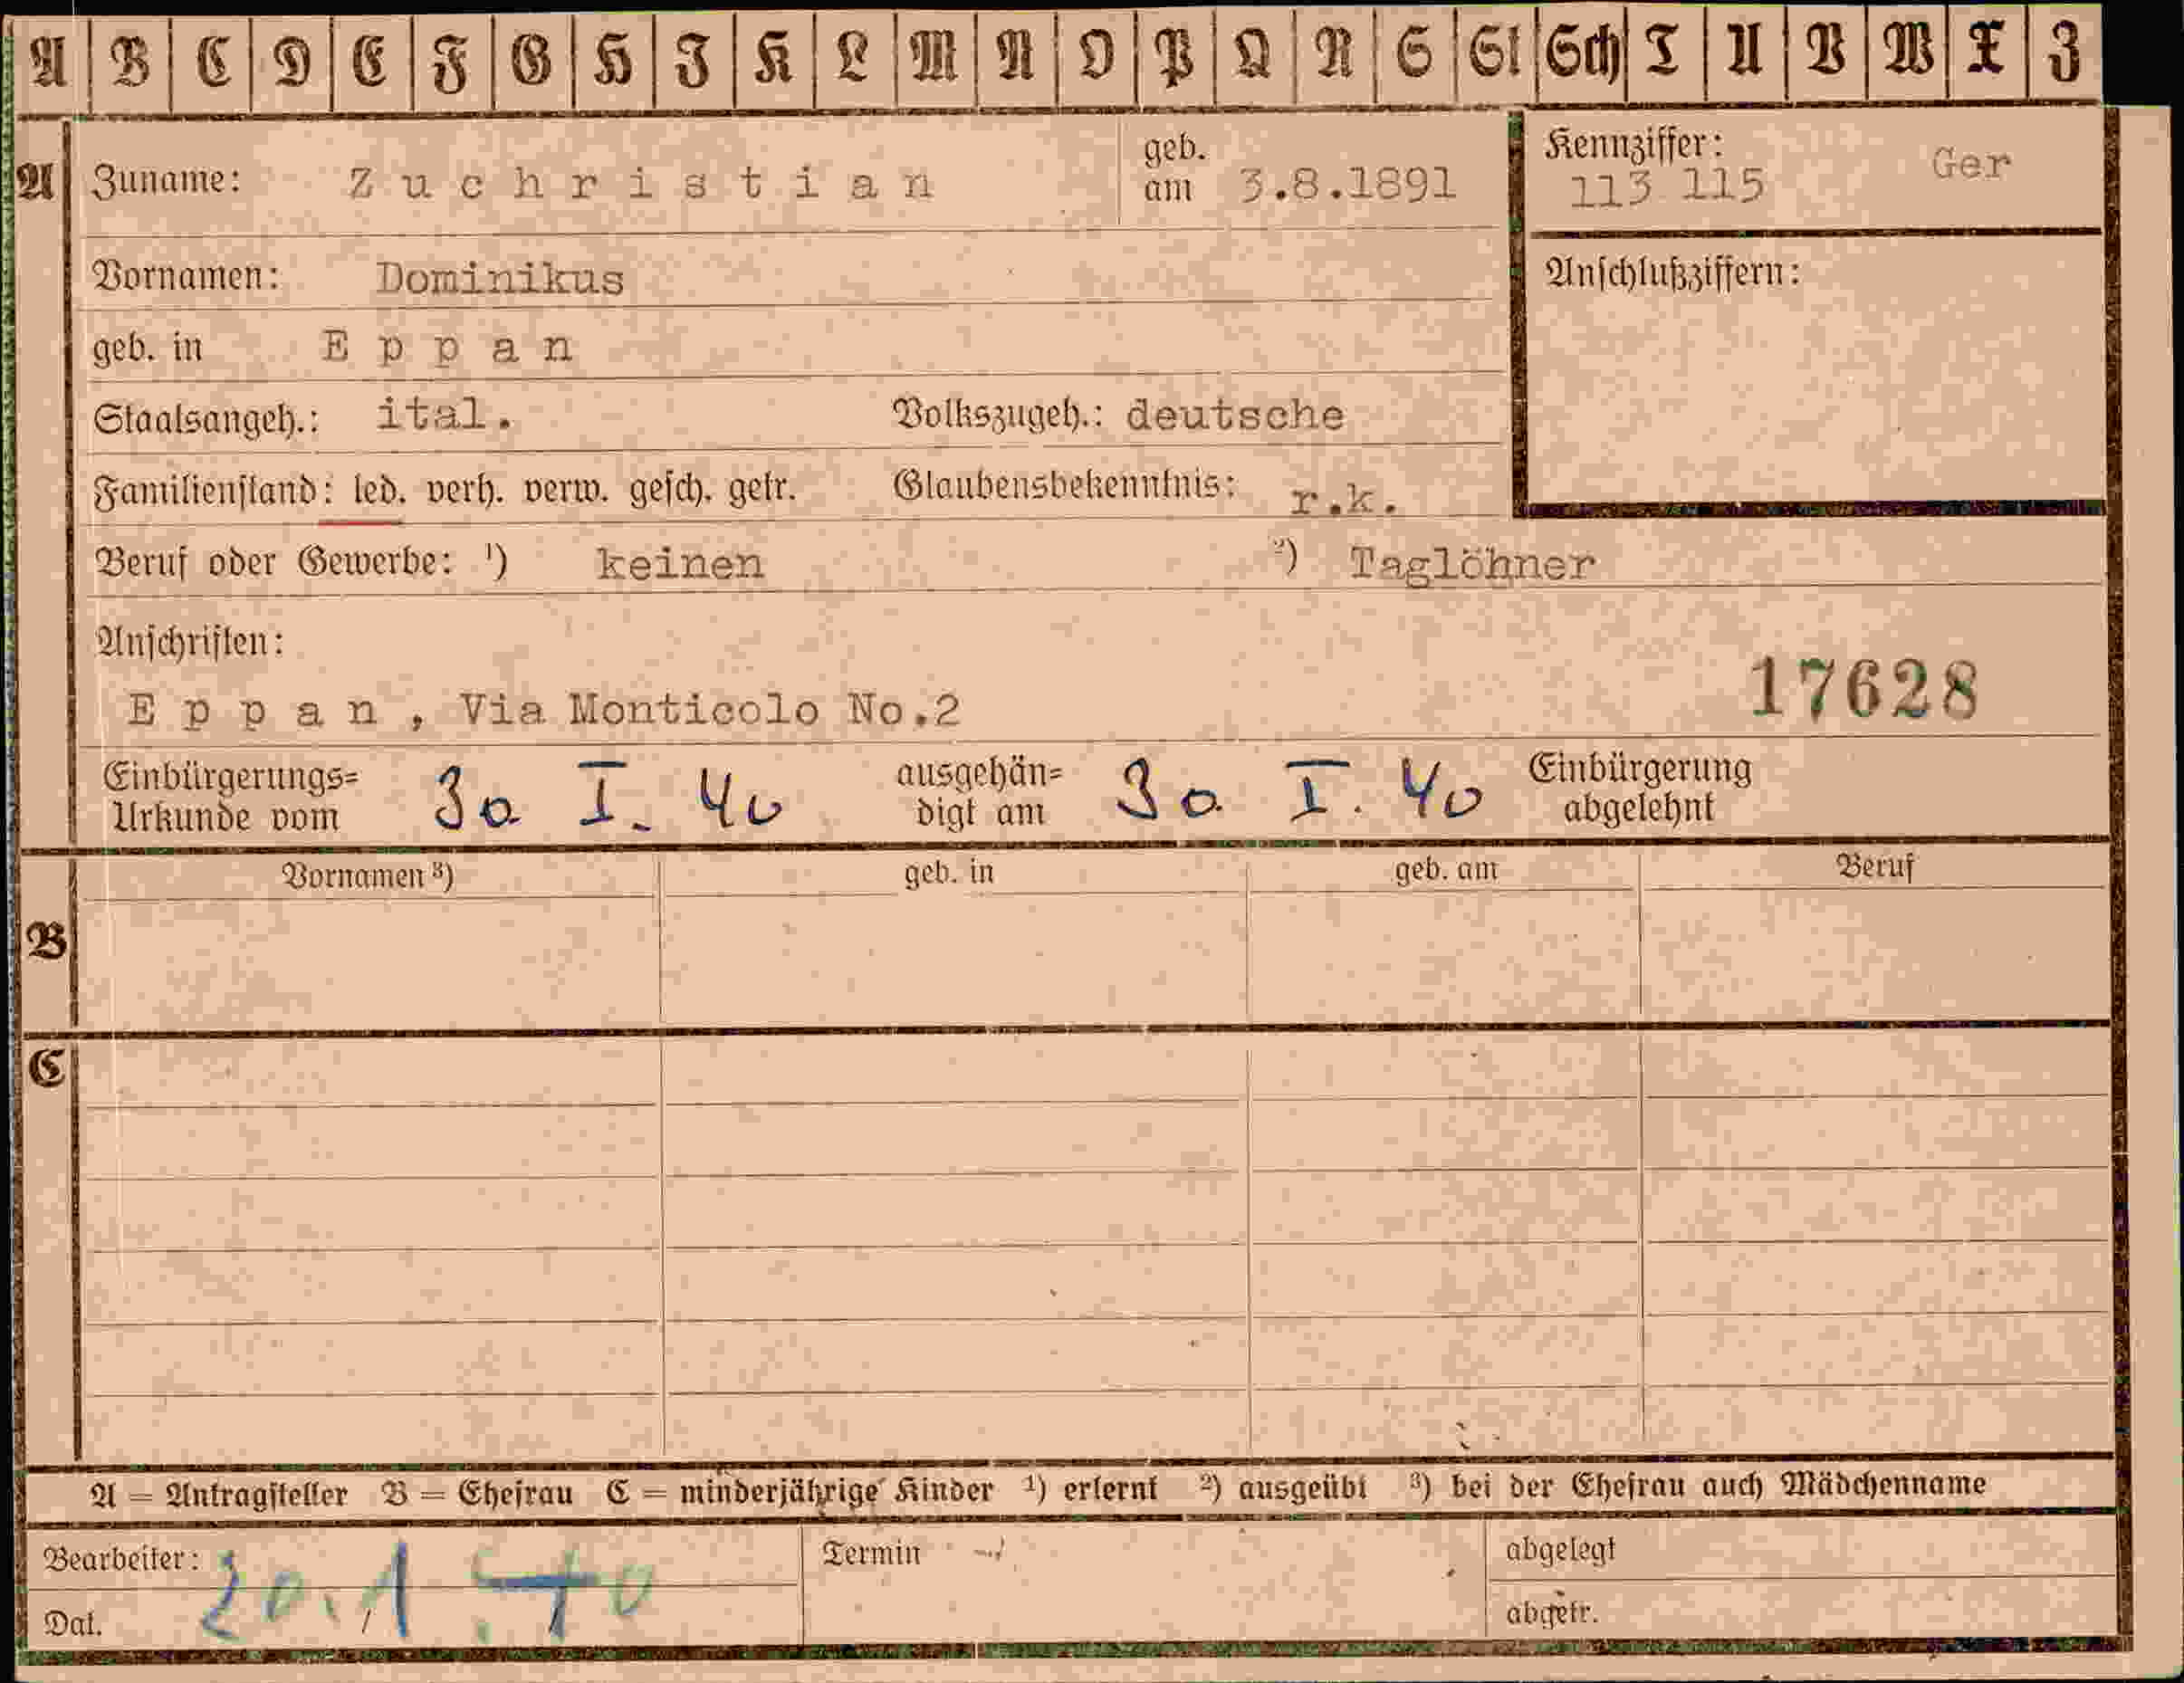 A B C D E F G H I K L M N O P Q R S St Sch T U V W X Z
A Zuname: Zuchristian geb. am 3.8.1891 Kennziffer: 113 115 Ger
Vornamen: Dominikus Anschlußziffern:
geb. in Eppan
Staatsangeh.: ital. Volkszugeh.: deutsche
Familienstand: led. verh. verw. gesch. getr. Glaubensbekenntnis: r.k.
Beruf oder Gewerbe: ¹) keinen ²) Taglöhner
Anschriften:
17628
Eppan, Via Monticolo No.2
Einbürgerungs= Urkunde vom 30 I. 40 ausgehän= digt am 30. I. 40 Einbürgerung abgelehnt
Vornamen ³) geb. in geb. am Beruf
B
C
A = Antragsteller B = Ehefrau C = minderjährige Kinder ¹) erlernt ²) ausgeübt ³) bei der Ehefrau auch Mädchenname
Bearbeiter: Termin abgelegt
Dat. 20.1.40 abgetr.